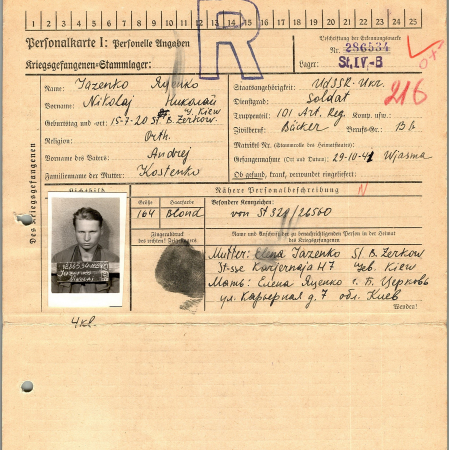 1 2 3 4 5 6 7 8 9 10 11 12 13 14 15 16 17 18 19 20 21 22 23 24 25
R
Personalkarte I: Personelle Angaben
Beschriftung der Erkennungsmarke
Nr. 286534
Kriegsgefangenen-Stammlager:
Lager: St. IV-B
Des Kriegsgefangenen
Name: Jazenko Яценко
Staatsangehörigkeit: UdSSR-Ukr.
216
Vorname: Nikolaj Николай
Dienstgrad: Soldat
Truppenteil: 101 Art. Reg. Komp. usw.:
Geburtstag und -ort: 15-7-20 St. B. Zerkow. Kiew
Zivilberuf: Bäcker Berufs-Gr.:
Religion: Orth.
Matrikel Nr. (Stammrolle des Heimatstaates):
Vorname des Vaters: Andrej
Gefangennahme (Ort und Datum): 29-10-41 Wjasma
Familienname der Mutter: Kostenko
Ob gesund, krank, verwundet eingeliefert:
Lichtbild
Nähere Personalbeschreibung N
Größe Haarfarbe Besondere Kennzeichen:
164 Blond von St 321/26560
Fingerabdruck
des rechten! Zeigefingers
Name und Anschrift der zu benachrichtigenden Person in der Heimat
des Kriegsgefangenen
Mutter: Elina Jazenko St. B. Zerkow
Karjernaja N7 Geb. Kiew
Мать: Елена Яценко с. Б. Церковь
ул. Карьерная д. 7 обл. Киев
Wenden!
4 кл.